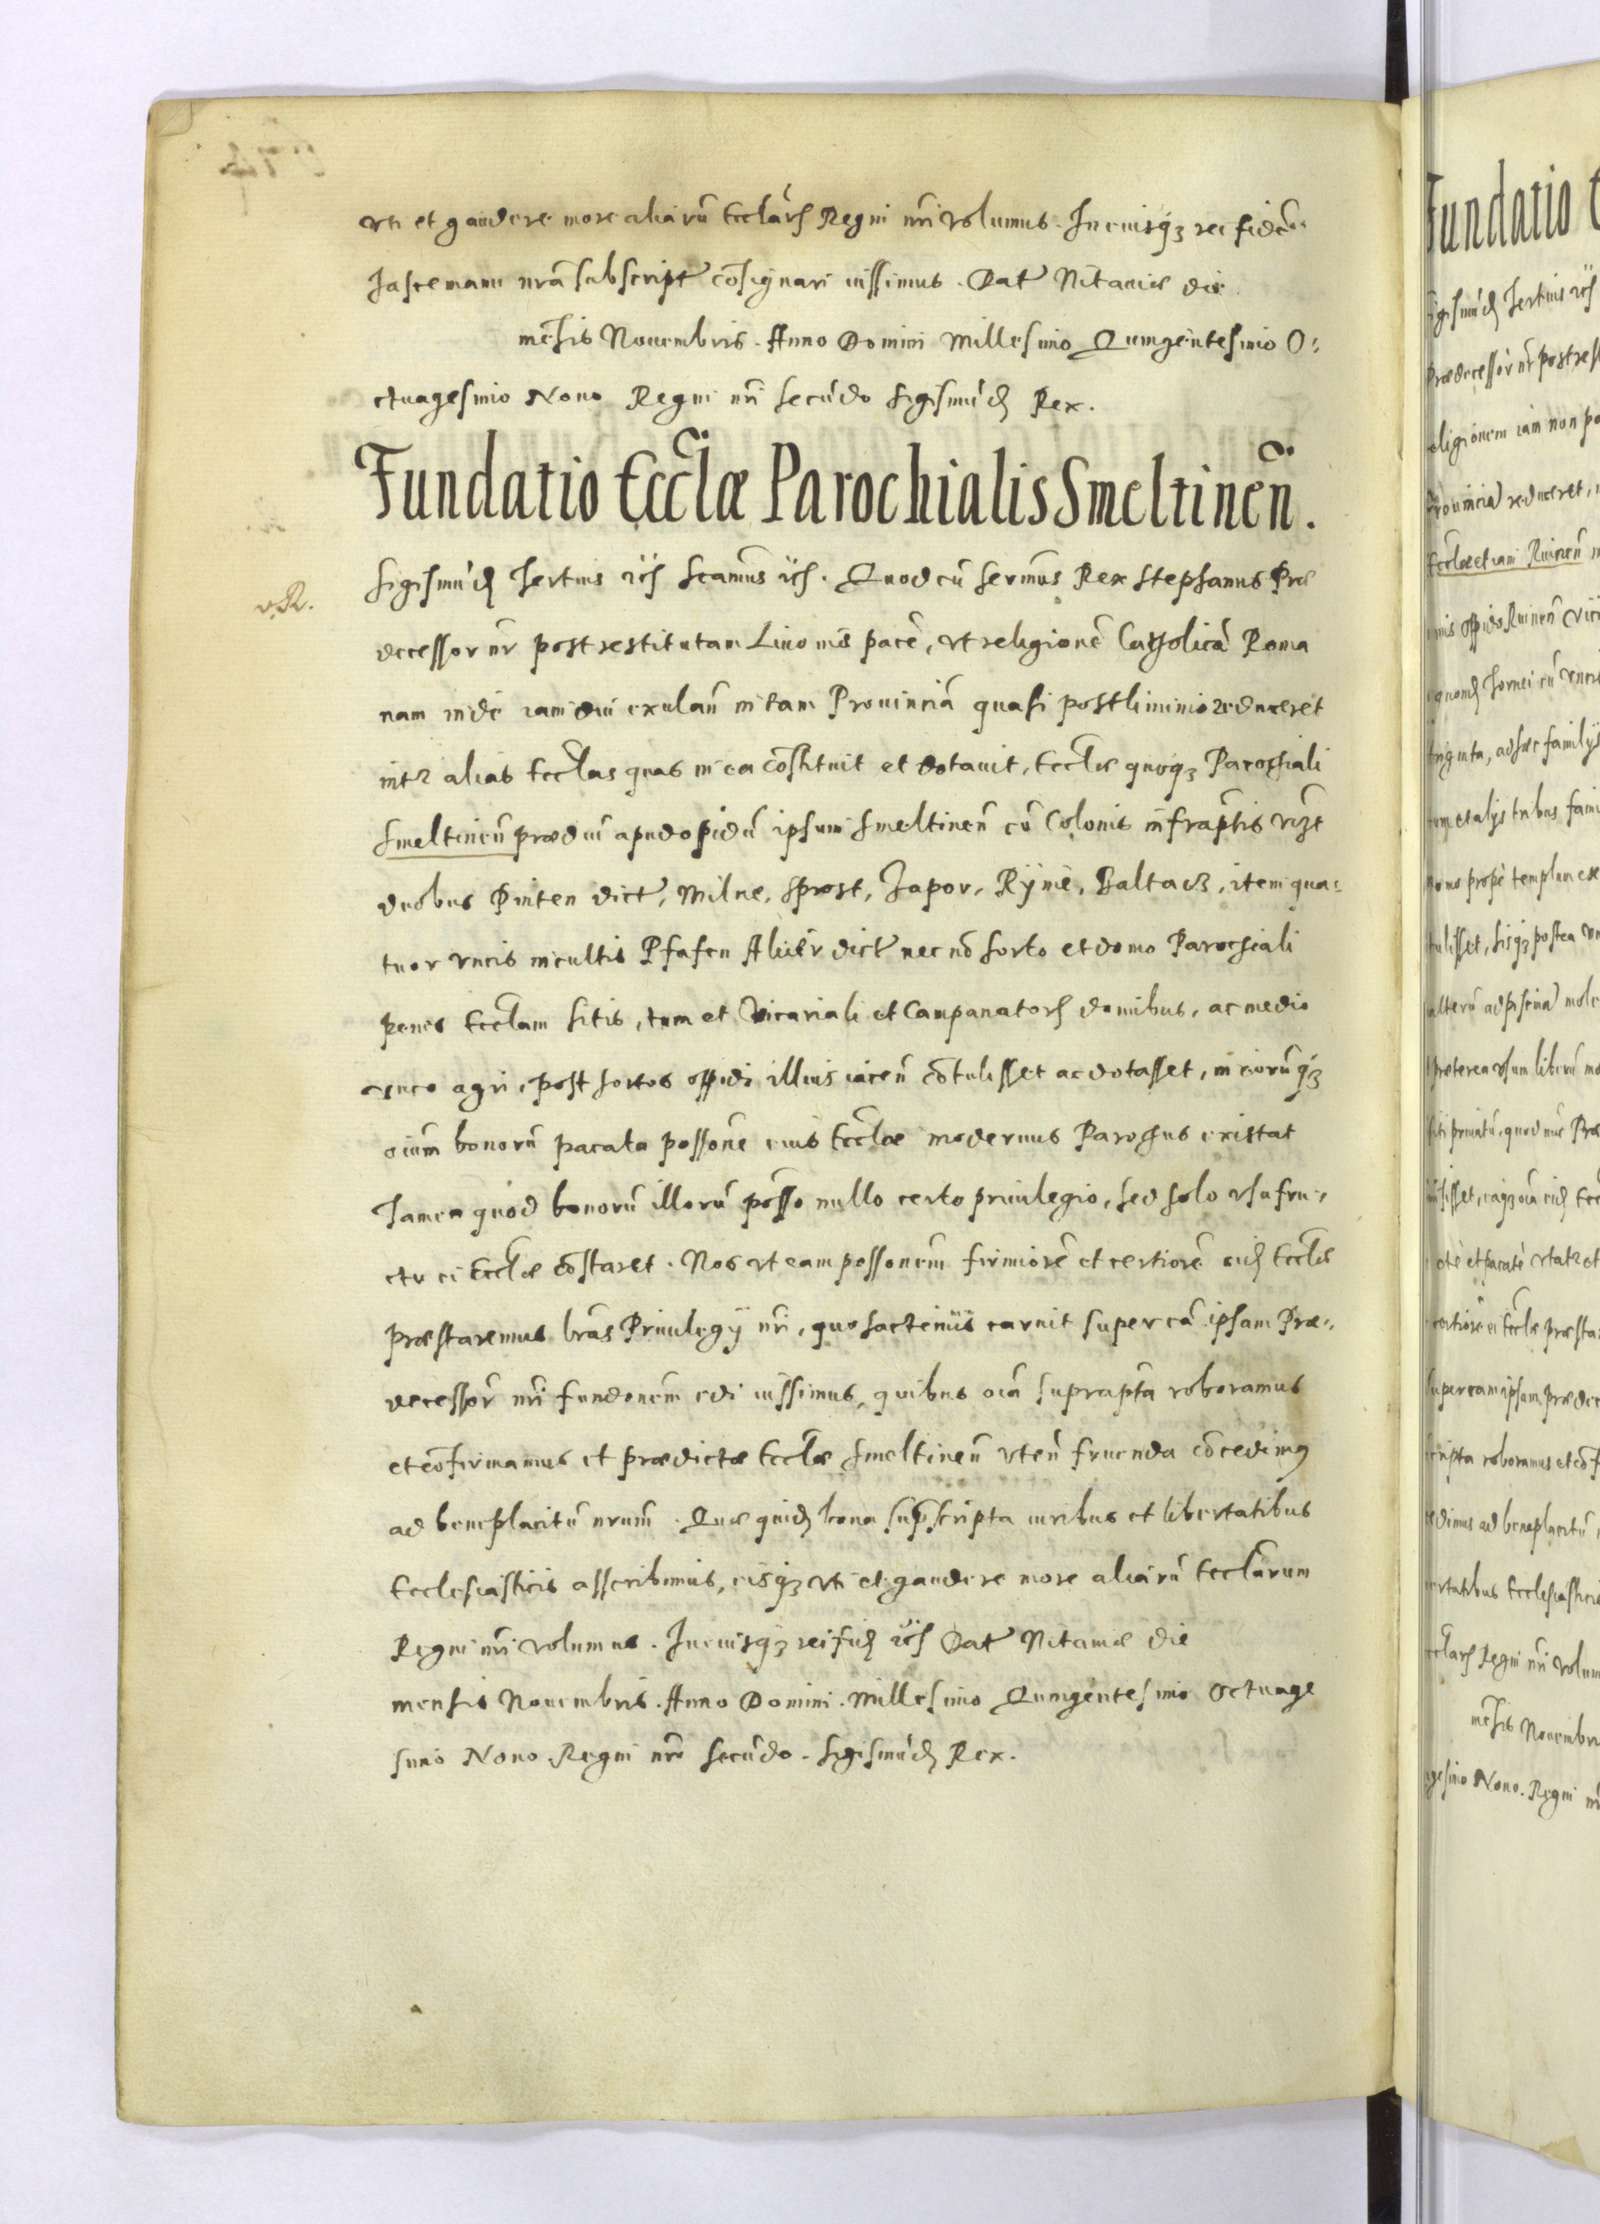 vti et gaudere more aliarũ Ecclãrũ Regni nr̃i volumus. In cuiusq̃ rei fidẽ
hasce manu nrã subscript̃ cõsignari iussimus. Dat̃ Vitaviæ die
mẽsis Nouembris. Anno Domini Millesimo Quingẽntesimo O:
ctuagesimo Nono Regni nr̃i secũdo Sigismũd9 Rex.
Fundatio Eccl̃æ Parochialis Smeltineñ.
v.R.
Sigismũd9 Tertius etc̃ Scamus etc̃. Quod cũ Sermũs Rex Stephanus Præ
decessor nr̃ post restitutam Liuonis pacẽ, vt religionẽ Catholicã Roma
nam inde iam diu exulañ in tam Prouinciã quasi postliminio reduceret
inter alias Eccl̃as quas in ea cõstituit et dotauit, Eccl̃æ quoq3 Parochiali
Smeltineñ prædiũ apud opidũ ipsum Smeltineñ cũ Colonis infrap̃tis vizt
duobus Pinten dict̃, Milne, Sprost, Japor, Ryme, Baltacz, item qua:
tuor vncis incultis Pfafen Aluer dict̃ nec nõ horto et domo Parochiali
penes Eccl̃am sitis, tum et Vicariali et Campanatorũ domibus, ac medio
vnco agri post hortos oppidi illius iaceñ cõtulisset ac dotasset, in eorũq3
oium̃ bonorũ pacata possoñe eius Eccl̃æ modernus Parochus existat
Tamen quod bonorũ illorũ posso nullo certo priuilegio, sed solo vsufru:
ctu ei Eccl̃æ cõstaret. Nos vt eam possonem̃ firmiorẽ et certiorẽ eid̃ Eccl̃æ
præstaremus l̃ras Priuilegij nr̃i, quo hactenus caruit super eã ipsam Præ:
decessor̃ nr̃i fundonem̃ edi iussimus, quibus oiã suprap̃ta roboramus
et cõfirmamus et prædictæ Eccl̃æ Smeltineñ vteñ fruenda cõcedim9
ad beneplacitũ nrum̃. Quæ quid̃ bona sup̃scripta iuribus et libertatibus
Ecclesiasticis asscribimus, eisq3 vti et gaudere more aliarũ Eccl̃arum
Regni nr̃i volumus. In cuiusq3 rei fid̃ etc̃ Dat̃ Vitaviæ die
mensis Nouembris. Anno Domini. Millesimo Quingẽntesimo Octuage
simo Nono Regni nr̃i Secũdo. Sigismũd9 Rex.